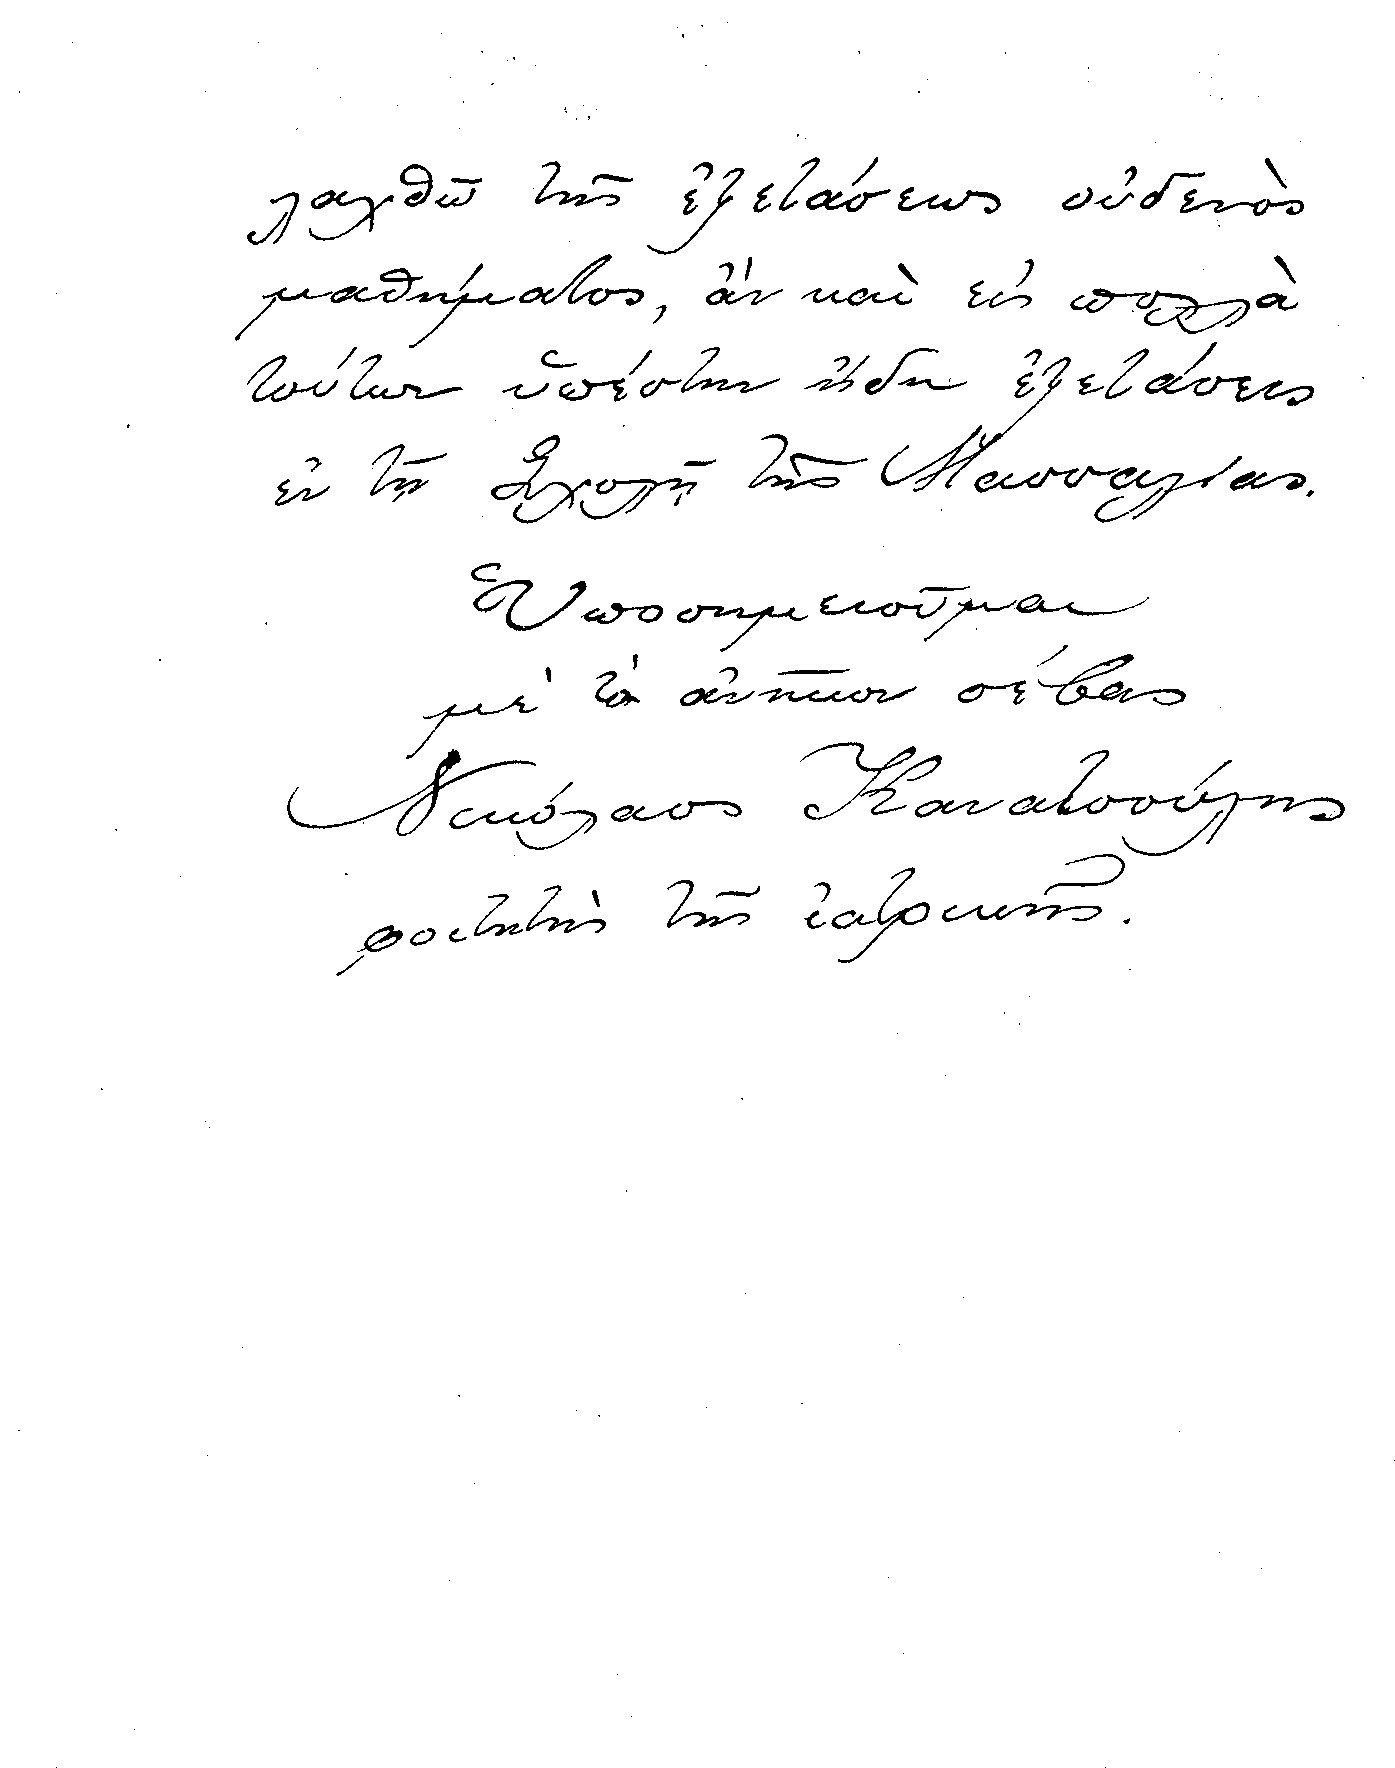 λαχθῶ τῆς ἐξετάσεως οὐδενὸς
μαθήματος, ἂν καὶ εἰς πολλὰ
τούτων ὑπέστην ἤδη ἐξετάσεις
ἐν τῇ Σχολῇ τῆς Μασσαλίας.
Ὑποσημειοῦμαι
μὲ τὸ ἀνῆκον σέβας
Νικόλαος Κανατσούλης
φοιτητὴς τῆς ἰατρικῆς.